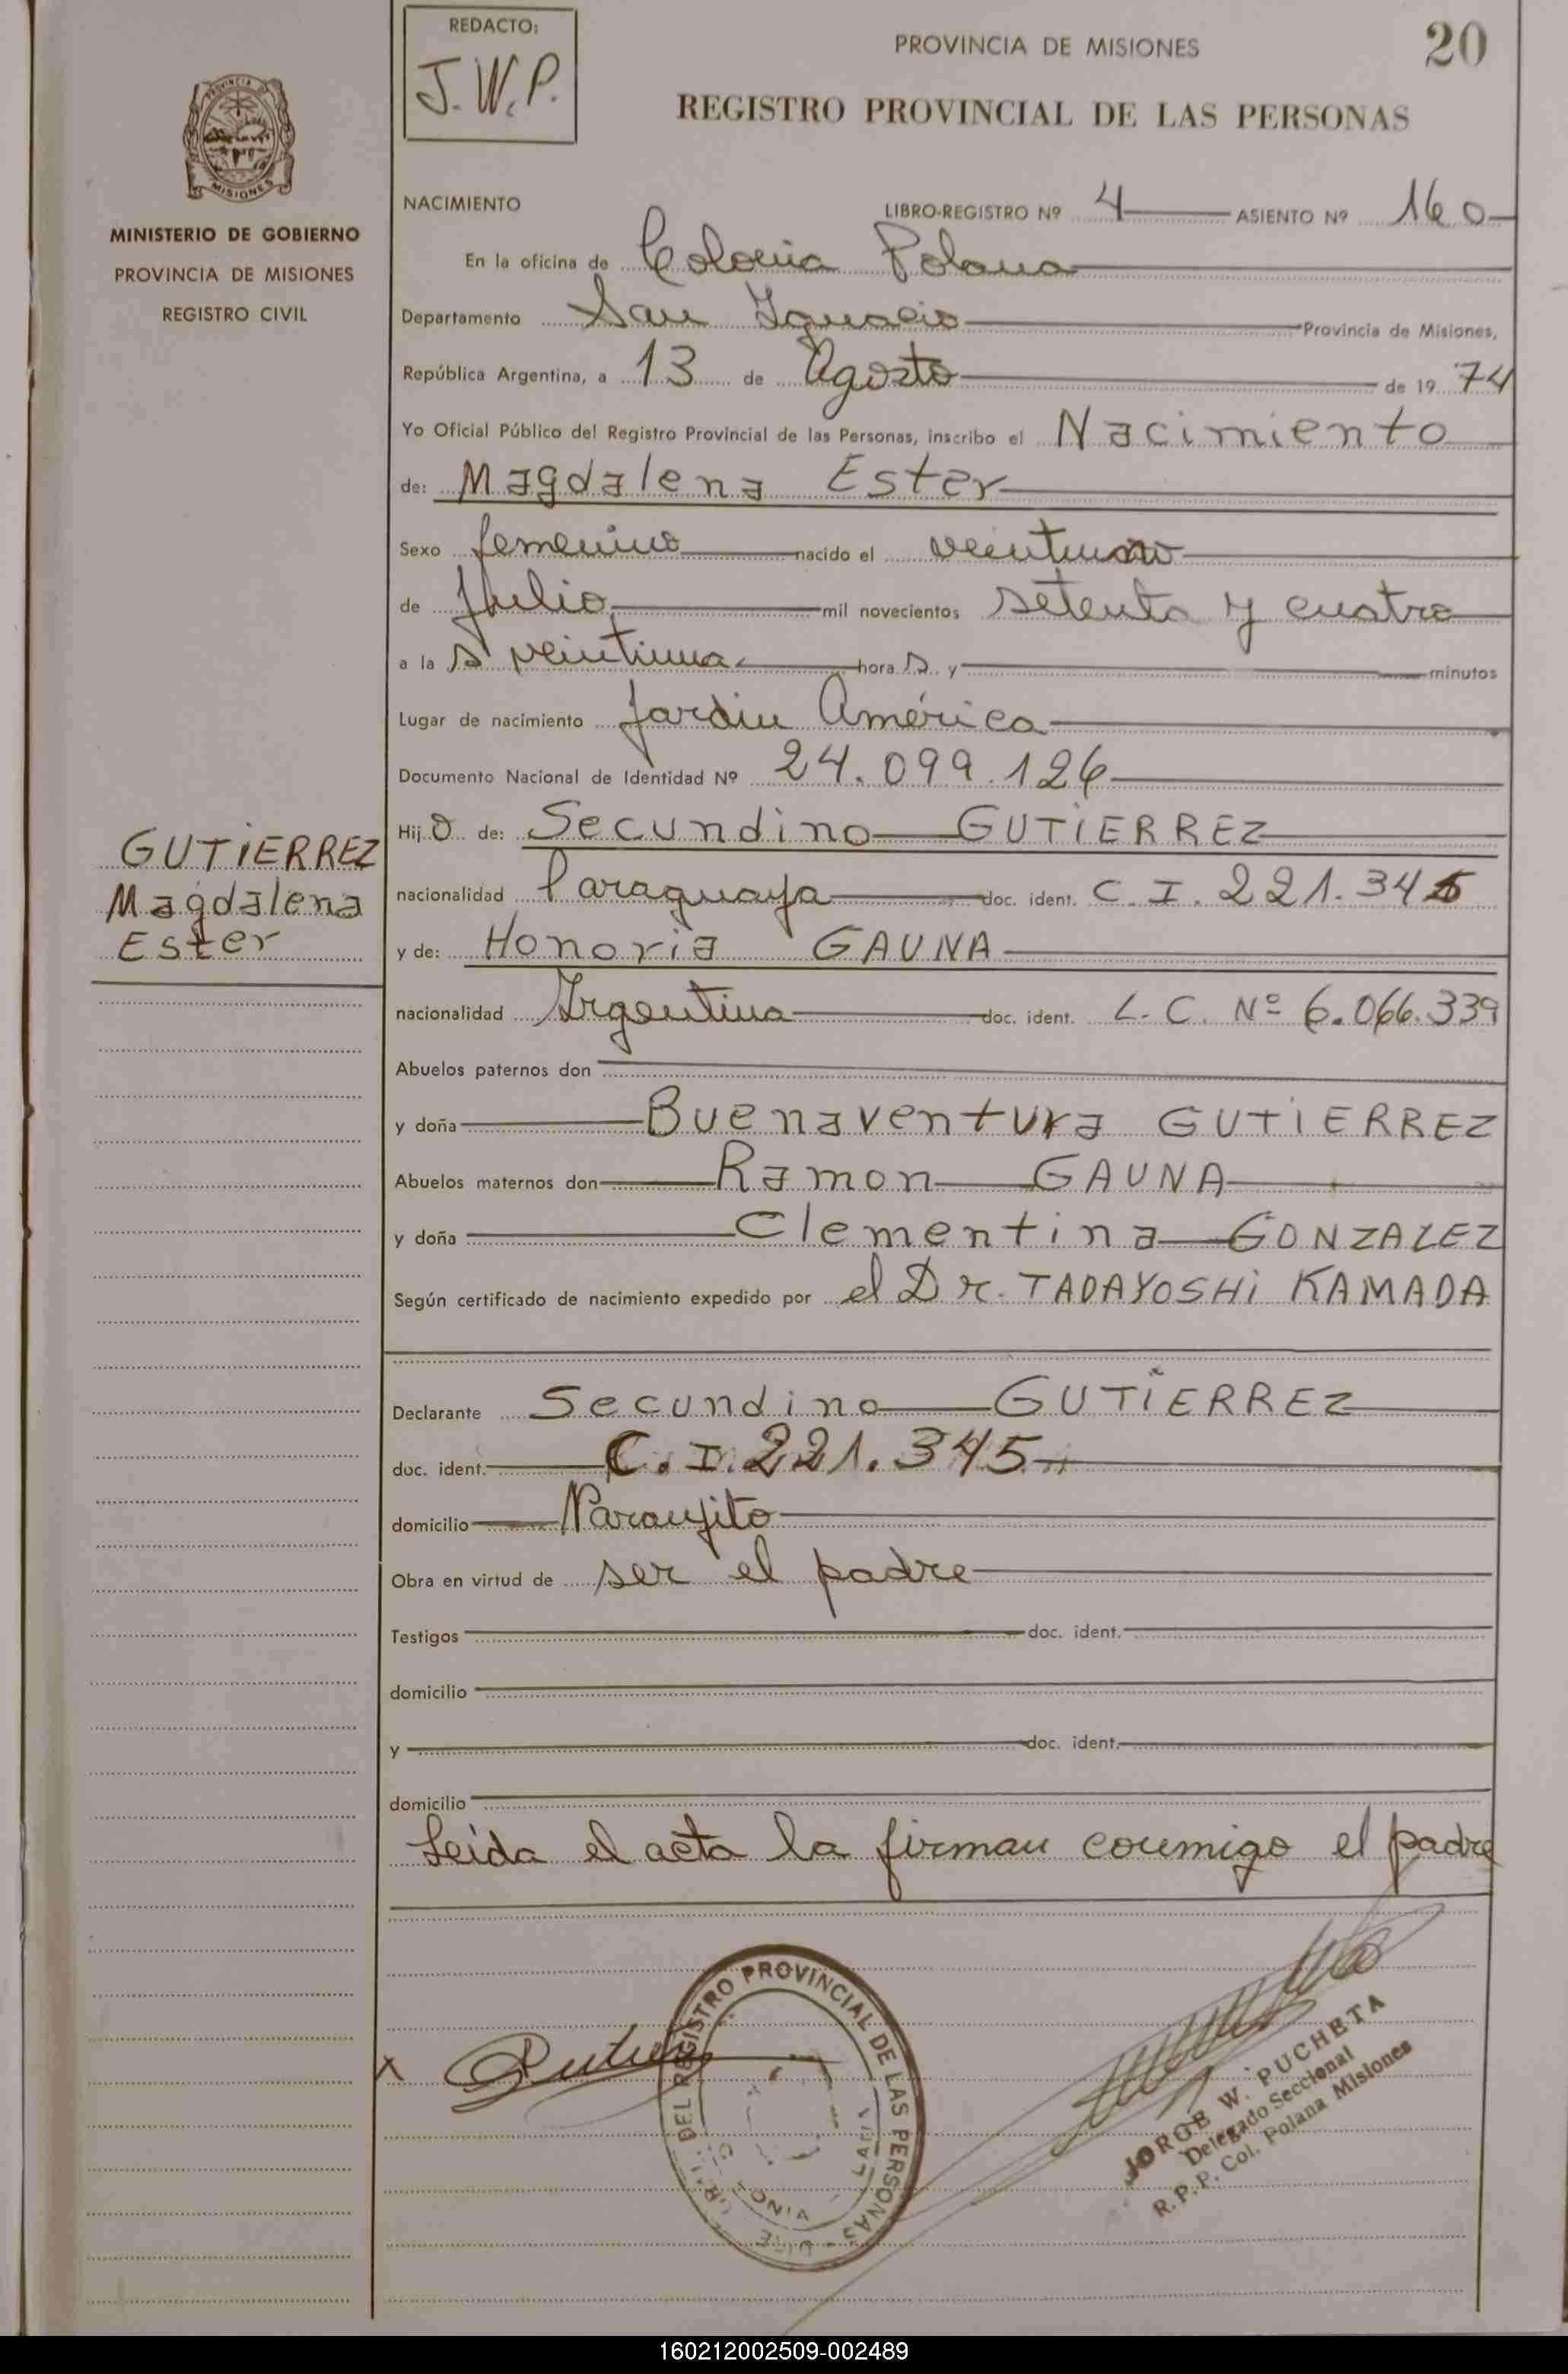 REDACTO:
J.W.P.
PROVINCIA DE MISIONES
20
REGISTRO PROVINCIAL DE LAS PERSONAS
MISIONES
MINISTERIO DE GOBIERNO
PROVINCIA DE MISIONES
REGISTRO CIVIL
NACIMIENTO
LIBRO-REGISTRO Nº 4 ASIENTO Nº 160
En la oficina de Colonia Polana
Departamento San Ignacio Provincia de Misiones,
República Argentina, a 13 de Agosto de 1974
Yo Oficial Público del Registro Provincial de las Personas, inscribo el Nacimiento
de: Magdalena Ester
Sexo femenino nacido el veintiuno
de Julio mil novecientos setenta y cuatro
a las veintiuna horas y minutos
Lugar de nacimiento Jardin América
Documento Nacional de Identidad Nº 24.099.126
GUTIERREZ
Magdalena
Ester
Hija de: Secundino GUTIERREZ
nacionalidad Paraguaya doc. ident. C.I. 221.345
y de: Honoria GAUNA
nacionalidad Argentina doc. ident. L.C. Nº 6.066.339
Abuelos paternos don
y doña Buenaventura GUTIERREZ
Abuelos maternos don Ramon GAUNA
y doña Clementina GONZALEZ
Según certificado de nacimiento expedido por el Dr. TADAYOSHI KAMADA
Declarante Secundino GUTIERREZ
doc. ident. C.I. 221.345
domicilio Naranjito
Obra en virtud de ser el padre
Testigos doc. ident.
domicilio
y doc. ident.
domicilio
Leida el acta la firman conmigo el padre
DEL REGISTRO PROVINCIAL DE LAS PERSONAS
JORGE W. PUCHETA
Delegado Seccional
R.P.P. Col. Polana Misiones
160212002509-002489